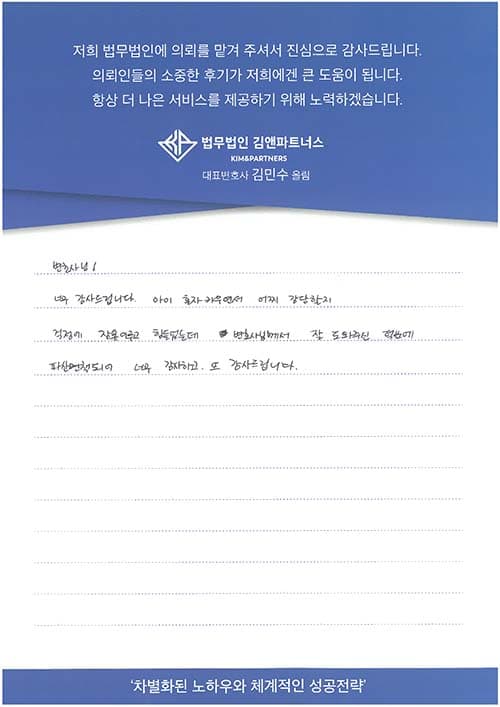 저희 법무법인에 의뢰를 맡겨 주셔서 진심으로 감사드립니다.
의뢰인들의 소중한 후기가 저희에겐 큰 도움이 됩니다.
항상 더 나은 서비스를 제공하기 위해 노력하겠습니다.
법무법인 김앤파트너스
KIM&PARTNERS
대표변호사 김민수 올림
변호사님!
너무 감사드립니다. 아이 혼자 키우면서 어찌 감당할지
걱정에 잠못이루고 힘들었는데 변호사님께서 잘 도와주신 덕분에
파산면책되어 너무 감사하고. 또 감사드립니다.
'차별화된 노하우와 체계적인 성공전략'